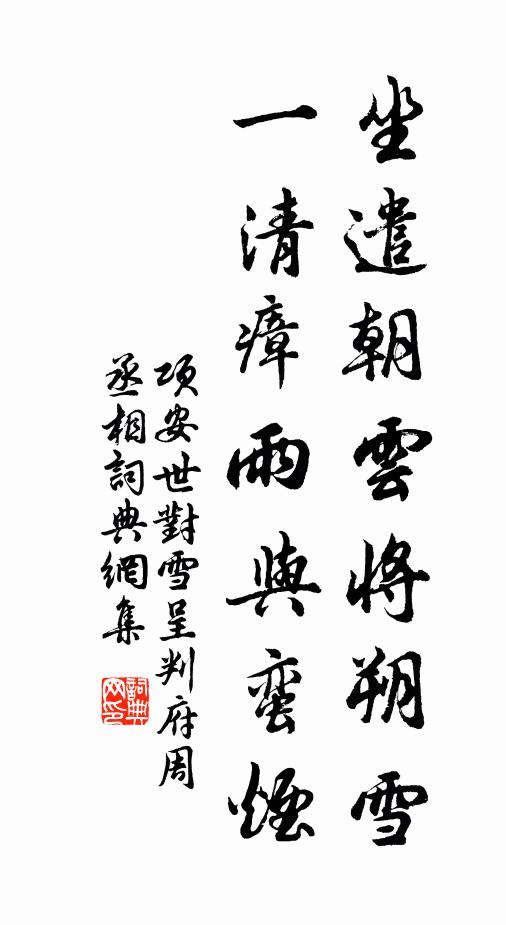 坐遣朝雲將朔雪
一清瘴雨與蠻煙
項安世對雪呈判府周
丞相詞典網集
詞典網印